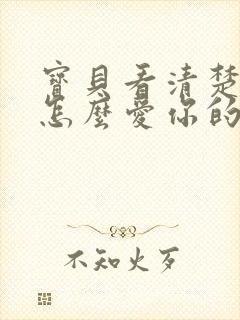 寶貝看清楚
怎麼愛你的
不知火歹